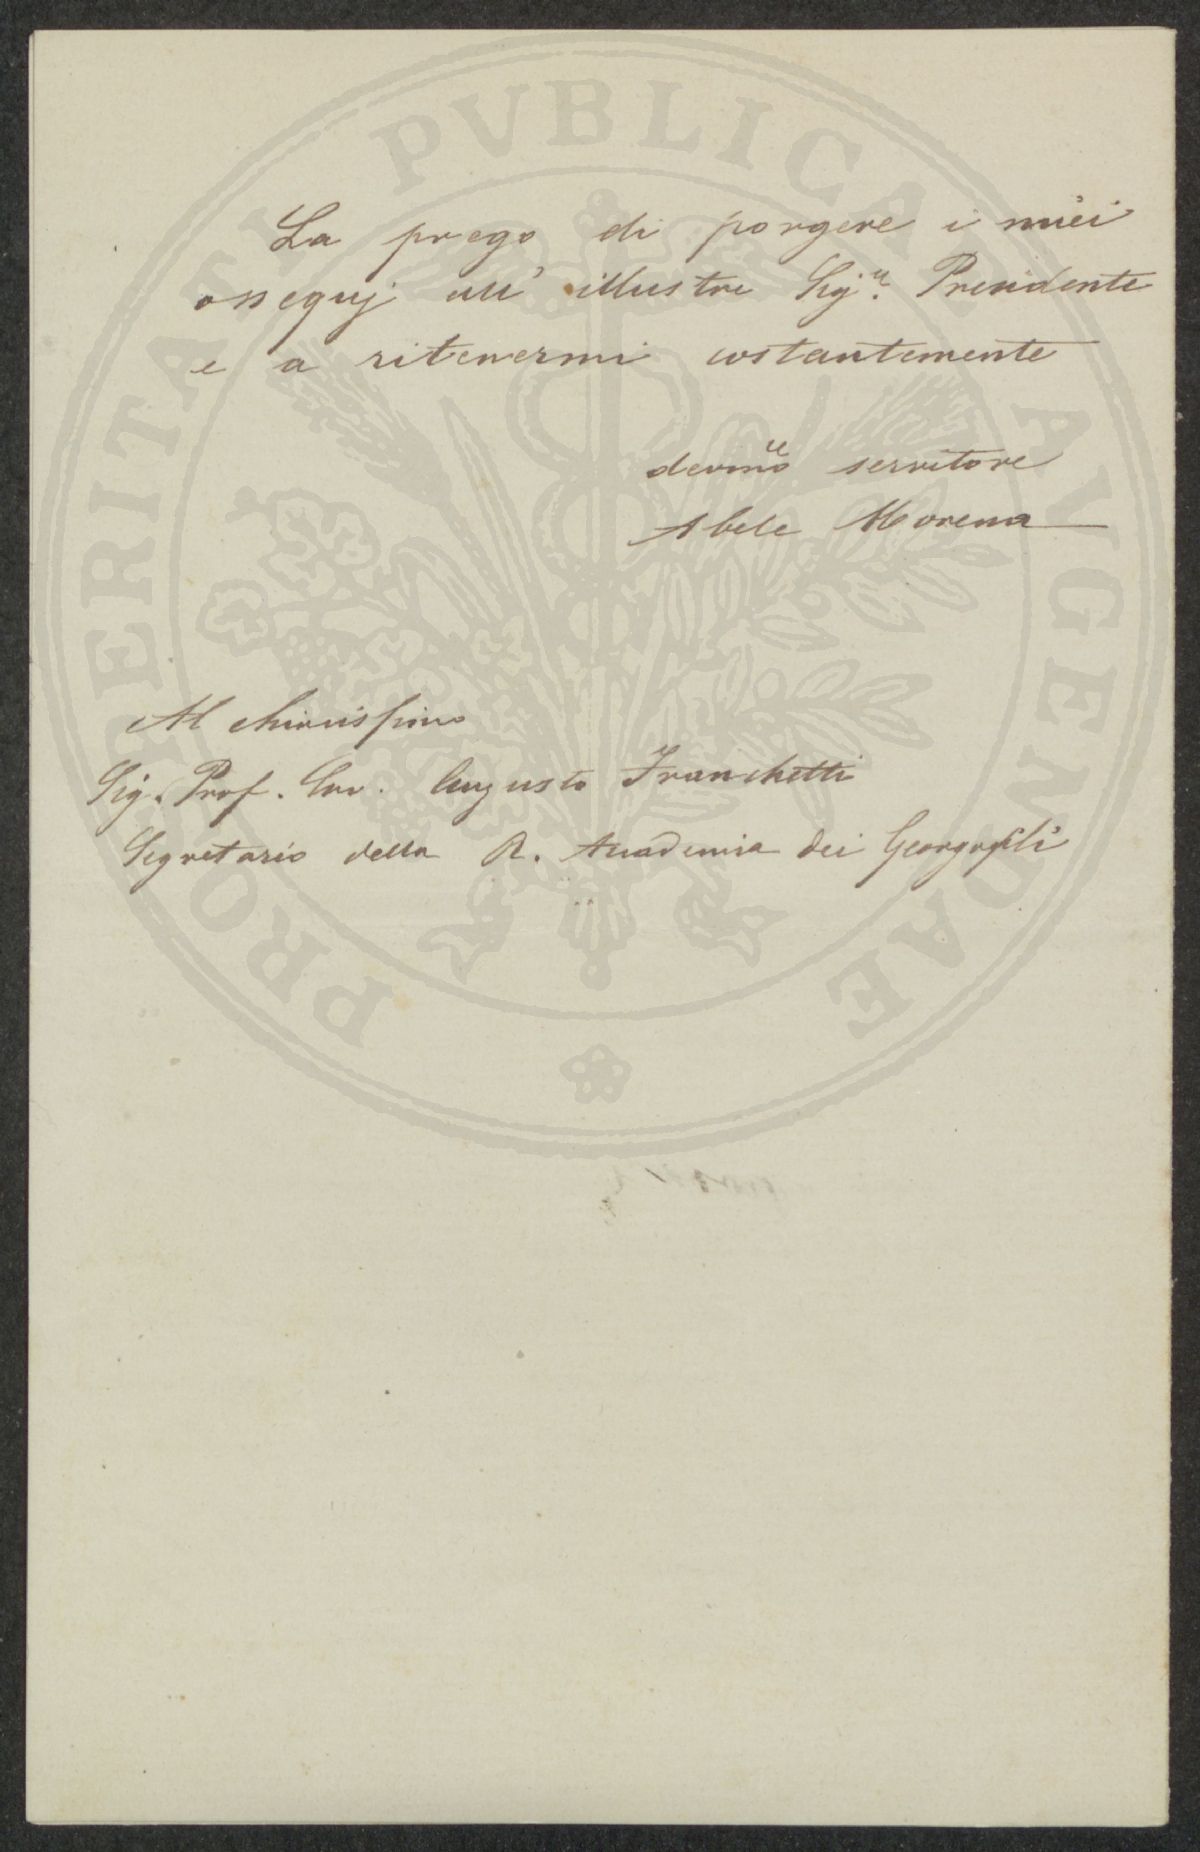 PROSPERITATI PVBLICAE AVGENDAE
La prego di porgere i miei
ossequj all' illustre Sigr. Presidente
e a ritenermi costantemente
devmo servitore
Abele Morena
Al chiarissimo
Sig. Prof. Cav. Augusto Franchetti
Segretario della R. Accademia dei Georgofili